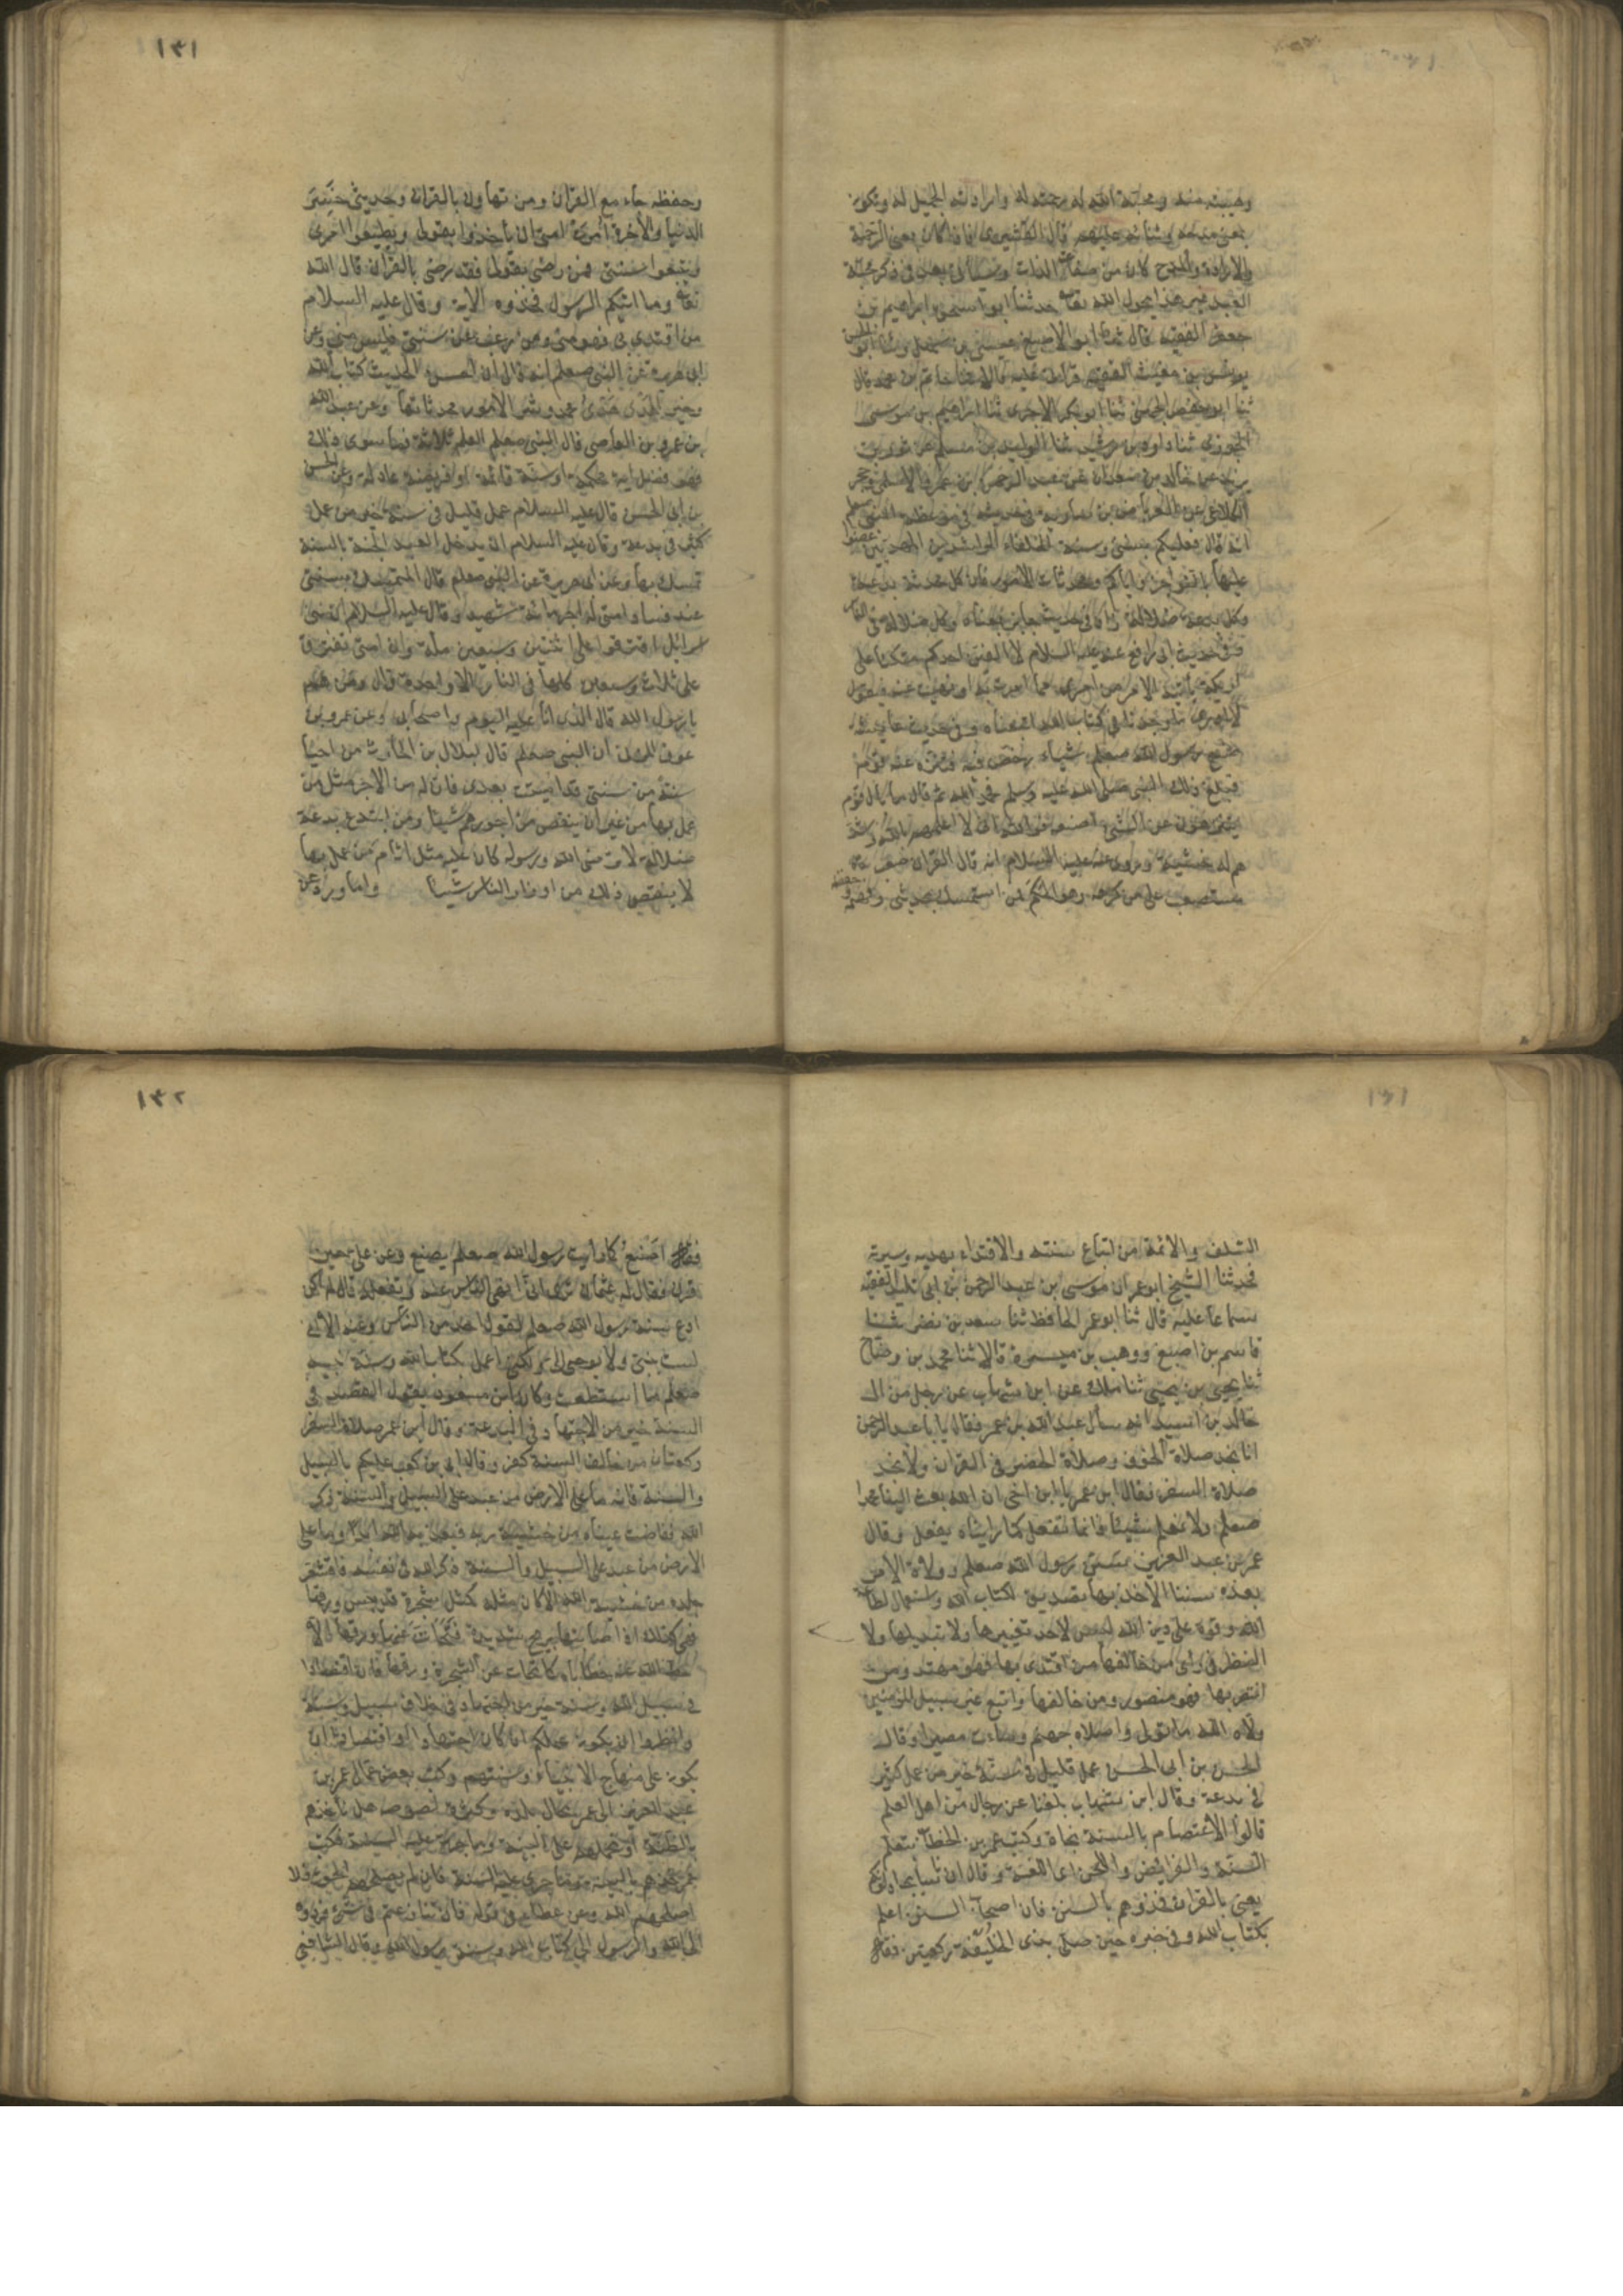 وهيبته منه ومحبة الله له رحمته له وارادته الجميل له وتكون
بمعنى مدحه وثنائه عليهم قال القشيرى فاذا كان بمعنى الرحمة
والارادة والمدح كان من صفات الذات وسيأتى بعد فى ذكر محبة
العبد غير هذا بحول الله تعالى حدثنا ابو اسحق ابراهيم بن
جعفر الفقيه قال ثنا ابو الاصبغ عيسى بن سهل وثنا ابو الحسن
يونس بن مغيث الفقيه قراءة عليه قالا ثنا حاتم بن محمد قال
ثنا ابو حفص الجهنى ثنا ابو بكر الاجرى ثنا ابراهيم بن موسى
الجوزى ثنا داود بن رشيد ثنا الوليد بن مسلم عن ثور بن
يزيد عن خالد بن معدان عن عبد الرحمن بن عمرو الاسلمى وحجر
الكلاعى عن العرباض بن سارية فى حديثه فى موعظة النبى صعلم
انه قال فعليكم بسنتى وسنة الخلفاء الراشدين المهديين عضوا
عليها بالنواجذ واياكم ومحدثات الامور فان كل محدثة بدعة
وكل بدعة ضلالة زاد فى حديث جابر بمعناه وكل ضلالة فى النار
وفى حديث ابى رافع عنه عليه السلام لا الفين احدكم متكئا على
اريكته يأتيه الامر من امرى مما امرت به او نهيت عنه فيقول
لا ادرى ما وجدنا فى كتاب الله اتبعناه وفى حديث عايشة
صنع رسول الله صعلم شيئاء رخص فيه فتنزه عنه قوم
فبلغ ذلك النبى صلى الله عليه وسلم فحمد الله ثم قال ما بال قوم
يتنزهون عن الشئ اصنعه فوالله انى لا اعلمهم بالله واشد
هم له خشية وروى عنه عليه السلام انه قال القران صعب
مستصعب على من كرهه وهو الحكم فمن استمسك بحديثى وفهمه وحفظه
١٣١
وحفظه جاء مع القران ومن تهاون بالقران وحديثى خسر
الدنيا والأخرة أمرت امتى ان يأخذوا بقولى ويطيعوا امرى
ويتبعوا سنتى فمن رضى بقولى فقد رضى بالقران قال الله
تعالى وما اتيكم الرسول فخذوه الاية وقال عليه السلام
من اقتدى بى فهو منى ومن رغب عن سنتى فليس منى وعن
ابى هريرة عن النبى صعلم انه قال ان احسن الحديث كتاب الله
وخير الهدى هدى محمد وشر الأمور محدثاتها وعن عبد الله
بن عمرو بن العاصى قال النبى صعلم العلم ثلاثة فما سوى ذلك
فهو فضل اية محكمة او سنة قائمة او فريضة عادلة وعن الحسن
بن ابى الحسن قال عليه السلام عمل قليل فى سنة خير من عمل
كثير فى بدعة وقال عليه السلام ان الله يدخل العبد الجنة بالسنة
تمسك بها وعن ابى هريرة عن النبى صعلم قال المتمسك بسنتى
عند فساد امتى له اجر مائة شهيد وقال عليه السلام ان بنى
اسرائل افترقوا على اثنتين وسبعين ملة وان امتى تفترق
على ثلاث وسبعين كلها فى النار الا واحدة قال ومن هم
يا رسول الله قال الذى انا عليه اليوم واصحابى وعن عمرو بن
عوف المزنى ان النبى صعلم قال لبلال بن الحارث من احيا
سنة من سنتى قد اميتت بعدى فان له من الاجر مثل من
عمل بها من غير ان ينقص من اجورهم شيئا ومن ابتدع بدعة
ضلالة لا ترضى الله ورسوله كان عليه مثل اثام من عمل بها
لا ينقص ذلك من اوزار الناس شيئا واما ورد عن
١٣١
السلف والائمة من اتباع سنته والاقتداء بهديه وسيرته
فحدثنا الشيخ ابو عمران موسى بن عبد الرحمن بن ابى تليد الفقيه
سماعا عليه قال ثنا ابو عمر الحافظ ثنا سعد بن نصر ثنا
قاسم بن اصبغ ووهب بن ميسرة قالا ثنا محمد بن وضاح
ثنا يحيى بن يحيى ثنا مالك عن ابن شهاب عن رجل من ال
خالد بن اسيد انه سأل عبد الله بن عمر فقال يا ابا عبد الرحمن
انا نجد صلاة الخوف وصلاة الحضر فى القران ولا نجد
صلاة السفر فقال ابن عمر يا ابن اخى ان الله بعث الينا محمدا
صعلم ولا نعلم شيئا فانما نفعل كما رايناه يفعل وقال
عمر بن عبد العزيز سن رسول الله صعلم وولاة الامر
بعده سننا الاخذ بها تصديق لكتاب الله واستعمال لطاعة
الله وقوة على دين الله ليس لاحد تغييرها ولا تبديلها ولا
النظر فى راى من خالفها من اقتدى بها فهو مهتد ومن
انتصر بها فهو منصور ومن خالفها واتبع غير سبيل المؤمنين
ولاه الله ما تولى واصلاه جهنم وساءت مصيرا وقال
الحسن بن ابى الحسن عمل قليل فى سنة خير من عمل كثير
فى بدعة وقال ابن شهاب بلغنا عن رجال من اهل العلم
قالوا الاعتصام بالسنة نجاة وكتب عمر بن الخطاب بتعلم
السنة والفرائض واللحن اى اللغة وقال ان ناسا يجادلونكم
يعنى بالقران فخذوهم بالسنن فان اصحاب السنن اعلم
بكتاب الله وفى خبره حين صلى بذى الحليفة ركعتين فقال
١٣٢
فقال اصنع كما رأيت رسول الله صعلم يصنع وعن على حين
قرن فقال له عثمان ترى انى انهى الناس عنه وتفعله قال لم اكن
ادع سنة رسول الله صعلم لقول احد من الناس وعنه الا انى
لست بنبى ولا يوحى الى ولكنى اعمل بكتاب الله وسنة نبيه
صعلم ما استطعت وكان ابن مسعود يقول القصد فى
السنة خير من الاجتهاد فى البدعة وقال ابن عمر صلاة السفر
ركعتان من خالف السنة كفر وقال ابى بن كعب عليكم بالسبيل
والسنة فانه ما على الارض من عبد على السبيل والسنة ذكر
الله ففاضت عيناه من خشية ربه فيعذبه الله ابدا وما على
الارض من عبد على السبيل والسنة ذكر الله فى نفسه فاقشعر
جلده من خشية الله الا كان مثله كمثل شجرة قد يبس ورقها
فهى كذلك اذا اصابتها ريح شديدة فتحات عنها ورقها الا
حط الله عنه خطاياه كما تحات عن الشجرة ورقها فان اقتصادا
فى سبيل الله وسنة خير من اجتهاد فى خلاف سبيل وسنة
وانظروا ان يكون عملكم ان كان اجتهادا او اقتصادا ان
يكون على منهاج الانبياء وسنتهم وكتب بعض عمال عمر بن
عبد العزيز الى عمر بحال بلده وكثرة لصوصه هل نأخذهم
بالظنة او نحملهم على البينة وما جرت عليه السنة فكتب
عمر خذهم بالبينة وما جرت عليه السنة فان لم يصلحهم الحق فلا
اصلحهم الله وعن عطاء فى قوله فان تنازعتم فى شئ فردوه
الى الله والرسول الى كتاب الله وسنة رسول الله وقال الشافعى